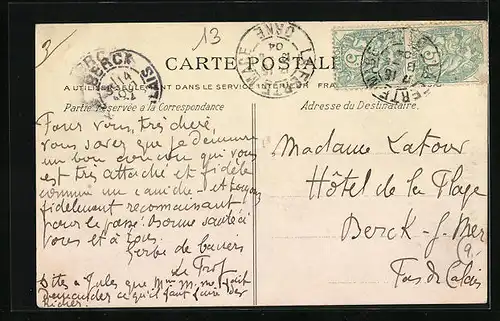 13
CARTE POSTALE
A UTILISER SEULEMENT DANS LE SERVICE INTERIEUR
Partie Réservée a la Correspondance
Adresse du Destinataire
BERCK
Pour vous, très chère,
vous savez que je demeure
un bon qui vous
est très attaché et fidèle
comme un caniche et toujours
fidèlement reconnaissant
pour le passé. Bonne santé à
vous et à tous.
Gerbe de baisers
Le Prof
Dites à Jules que
demander ce qu'il faut faire des
Madame Latour
Hôtel de la Plage
Berck-s-Mer
Pas de Calais